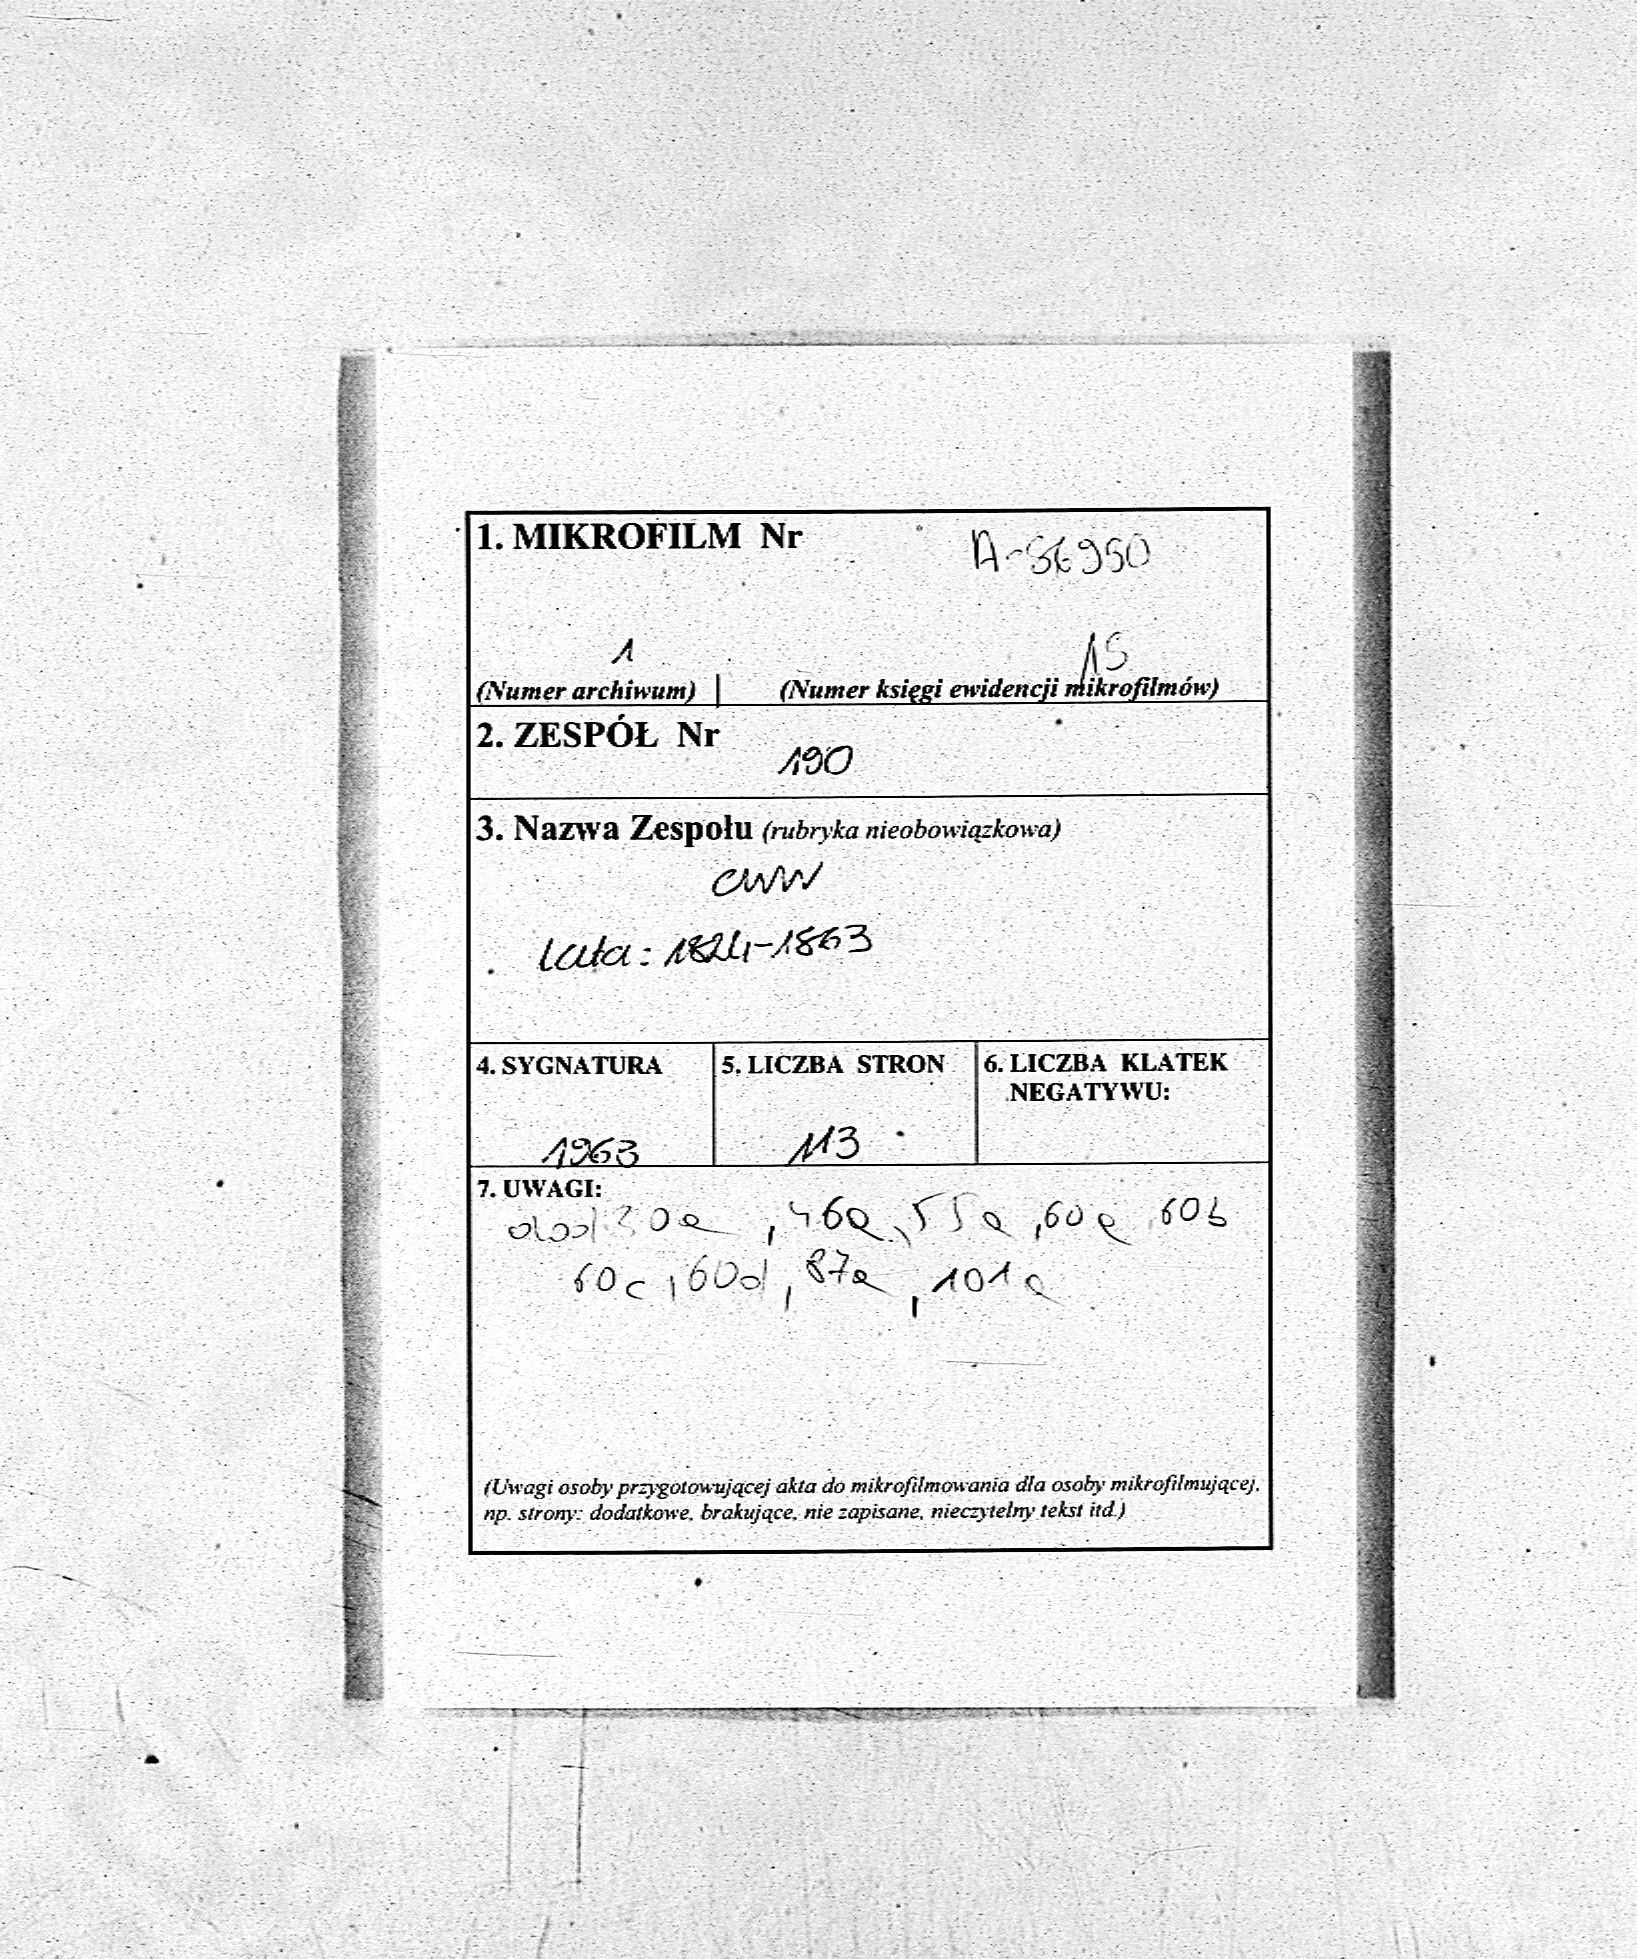 1. MIKROFILM Nr
A-56950
1
15
(Numer archiwum)
(Numer księgi ewidencji mikrofilmów)
2. ZESPÓŁ Nr
190
3. Nazwa Zespołu (rubryka nieobowiązkowa)
CWW
Lata: 1824-1863
4. SYGNATURA
5. LICZBA STRON
6. LICZBA KLATEK
NEGATYWU:
1963
113
7. UWAGI:
dod. 30a, 46a, 55a, 60a, 60b
60c, 60d, 87a, 101a
(Uwagi osoby przygotowującej akta do mikrofilmowania dla osoby mikrofilmującej,
np. strony: dodatkowe, brakujące, nie zapisane, nieczytelny tekst itd.)